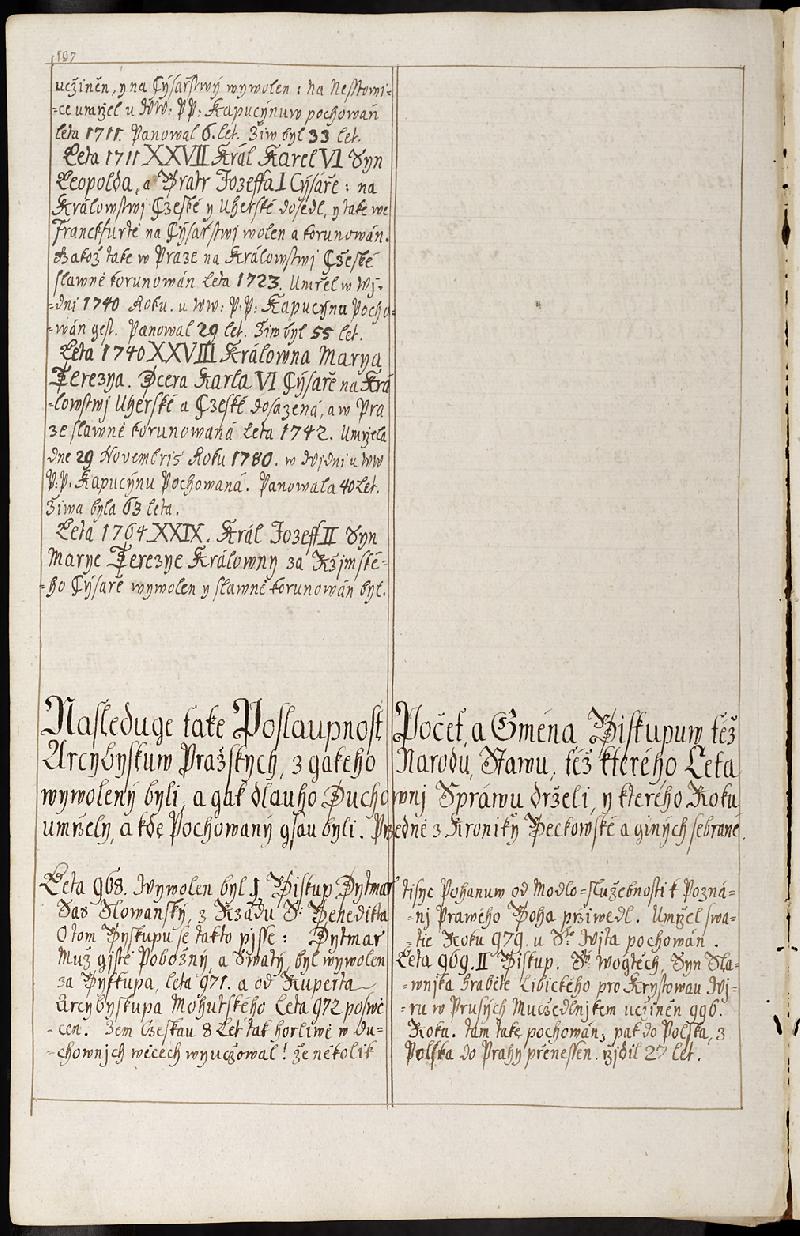 197
učžiněn, y na Cýsařstwý wywolen: Na Nesstowi-
-ce umržel u WW: PP: Kapucýnuw pochowán
leta 1711. Panowal 6. let. Žiw byl 33 let.
Leta 1711 XXVII Král Karel VI Syn
Leopolda, a Bratr Jozeffa I Cýsaře: na
Králowstwj Cžeské y Uherské dosedl, y take we
Franckfurtě na Cýsařstwj wolen a korunowán.
Jakož take w Praze na Králowstwj Cžeské
slawně korunowán Leta 1723. Umřel w Wj-
-dni 1740 Roku. u WW: P.P: Kapucýnu Pocho-
-wán gest. Panowal 29 let. Žiw byl 55 let.
Leta 1740 XXVIII Králowna Marya
Terezya. Dcera Karla VI Cýsaře na Krá
-lowstwj Uherské a Cžeské dosazená, a w Pra
ze slawně korunowaná Leta 1742. Umržela
dne 29 Novembris Roku 1780. w Wjdni u WW
P.P. Kapucýnu Pochowaná. Panowala 40 Let.
Žiwa byla 63 leta.
Leta 1764 XXIX. Král Jozeff II Syn
Marye Terezye Králowny za Ržjmské-
-ho Cýsaře wywolen y slawně korunowán byl.
Nasleduge take Poslaupnost Počet, a Gména Biskupuw též
Arcybyskuw Pražskych, z gakeho Narodu, Stawu, též kterého Leta
wywoleny byli, a gak dlauho Duchownj Spráwu drželi, y kterého Roku
umržely, a kde Pochowaný gsau byli. Předně z Kroniky Beckowské a giných sebrané.
Leta 968. Wywolen byl I Biskup Dytmar
Sas Slowanský, z Ržádu S: Benedikta
O tom Byskupu se takto pjsse: Dytmar
Muž gistě Pobožný a Swatý, byl wywolen
za Byskupa, leta 971. a od Ruperta
Arcybyskupa Mohutského Leta 972 poswě
-cen. Zem Cžeskau 8 Let tak horliwě w Du-
-chownjch wěcech wyučžowal! že několik
tisyc Pohanuw od Modlo-služebnosti k Pozná-
-nj Prawého Boha przjwedl. Umržel swa-
-tě Roku 979. u S. Wjta pochowán.
Leta 969. II Biskup. S. Wogtěch, Syn Sla-
-wnjka hraběte Libického pro Krystowau Wj-
-ru w Prusých Mučzedlnjkem učjněn 996.
Roku. tám také pochowán, pak do Polska, z
Polska do Prahy přenessen. ržjdil 27 let.